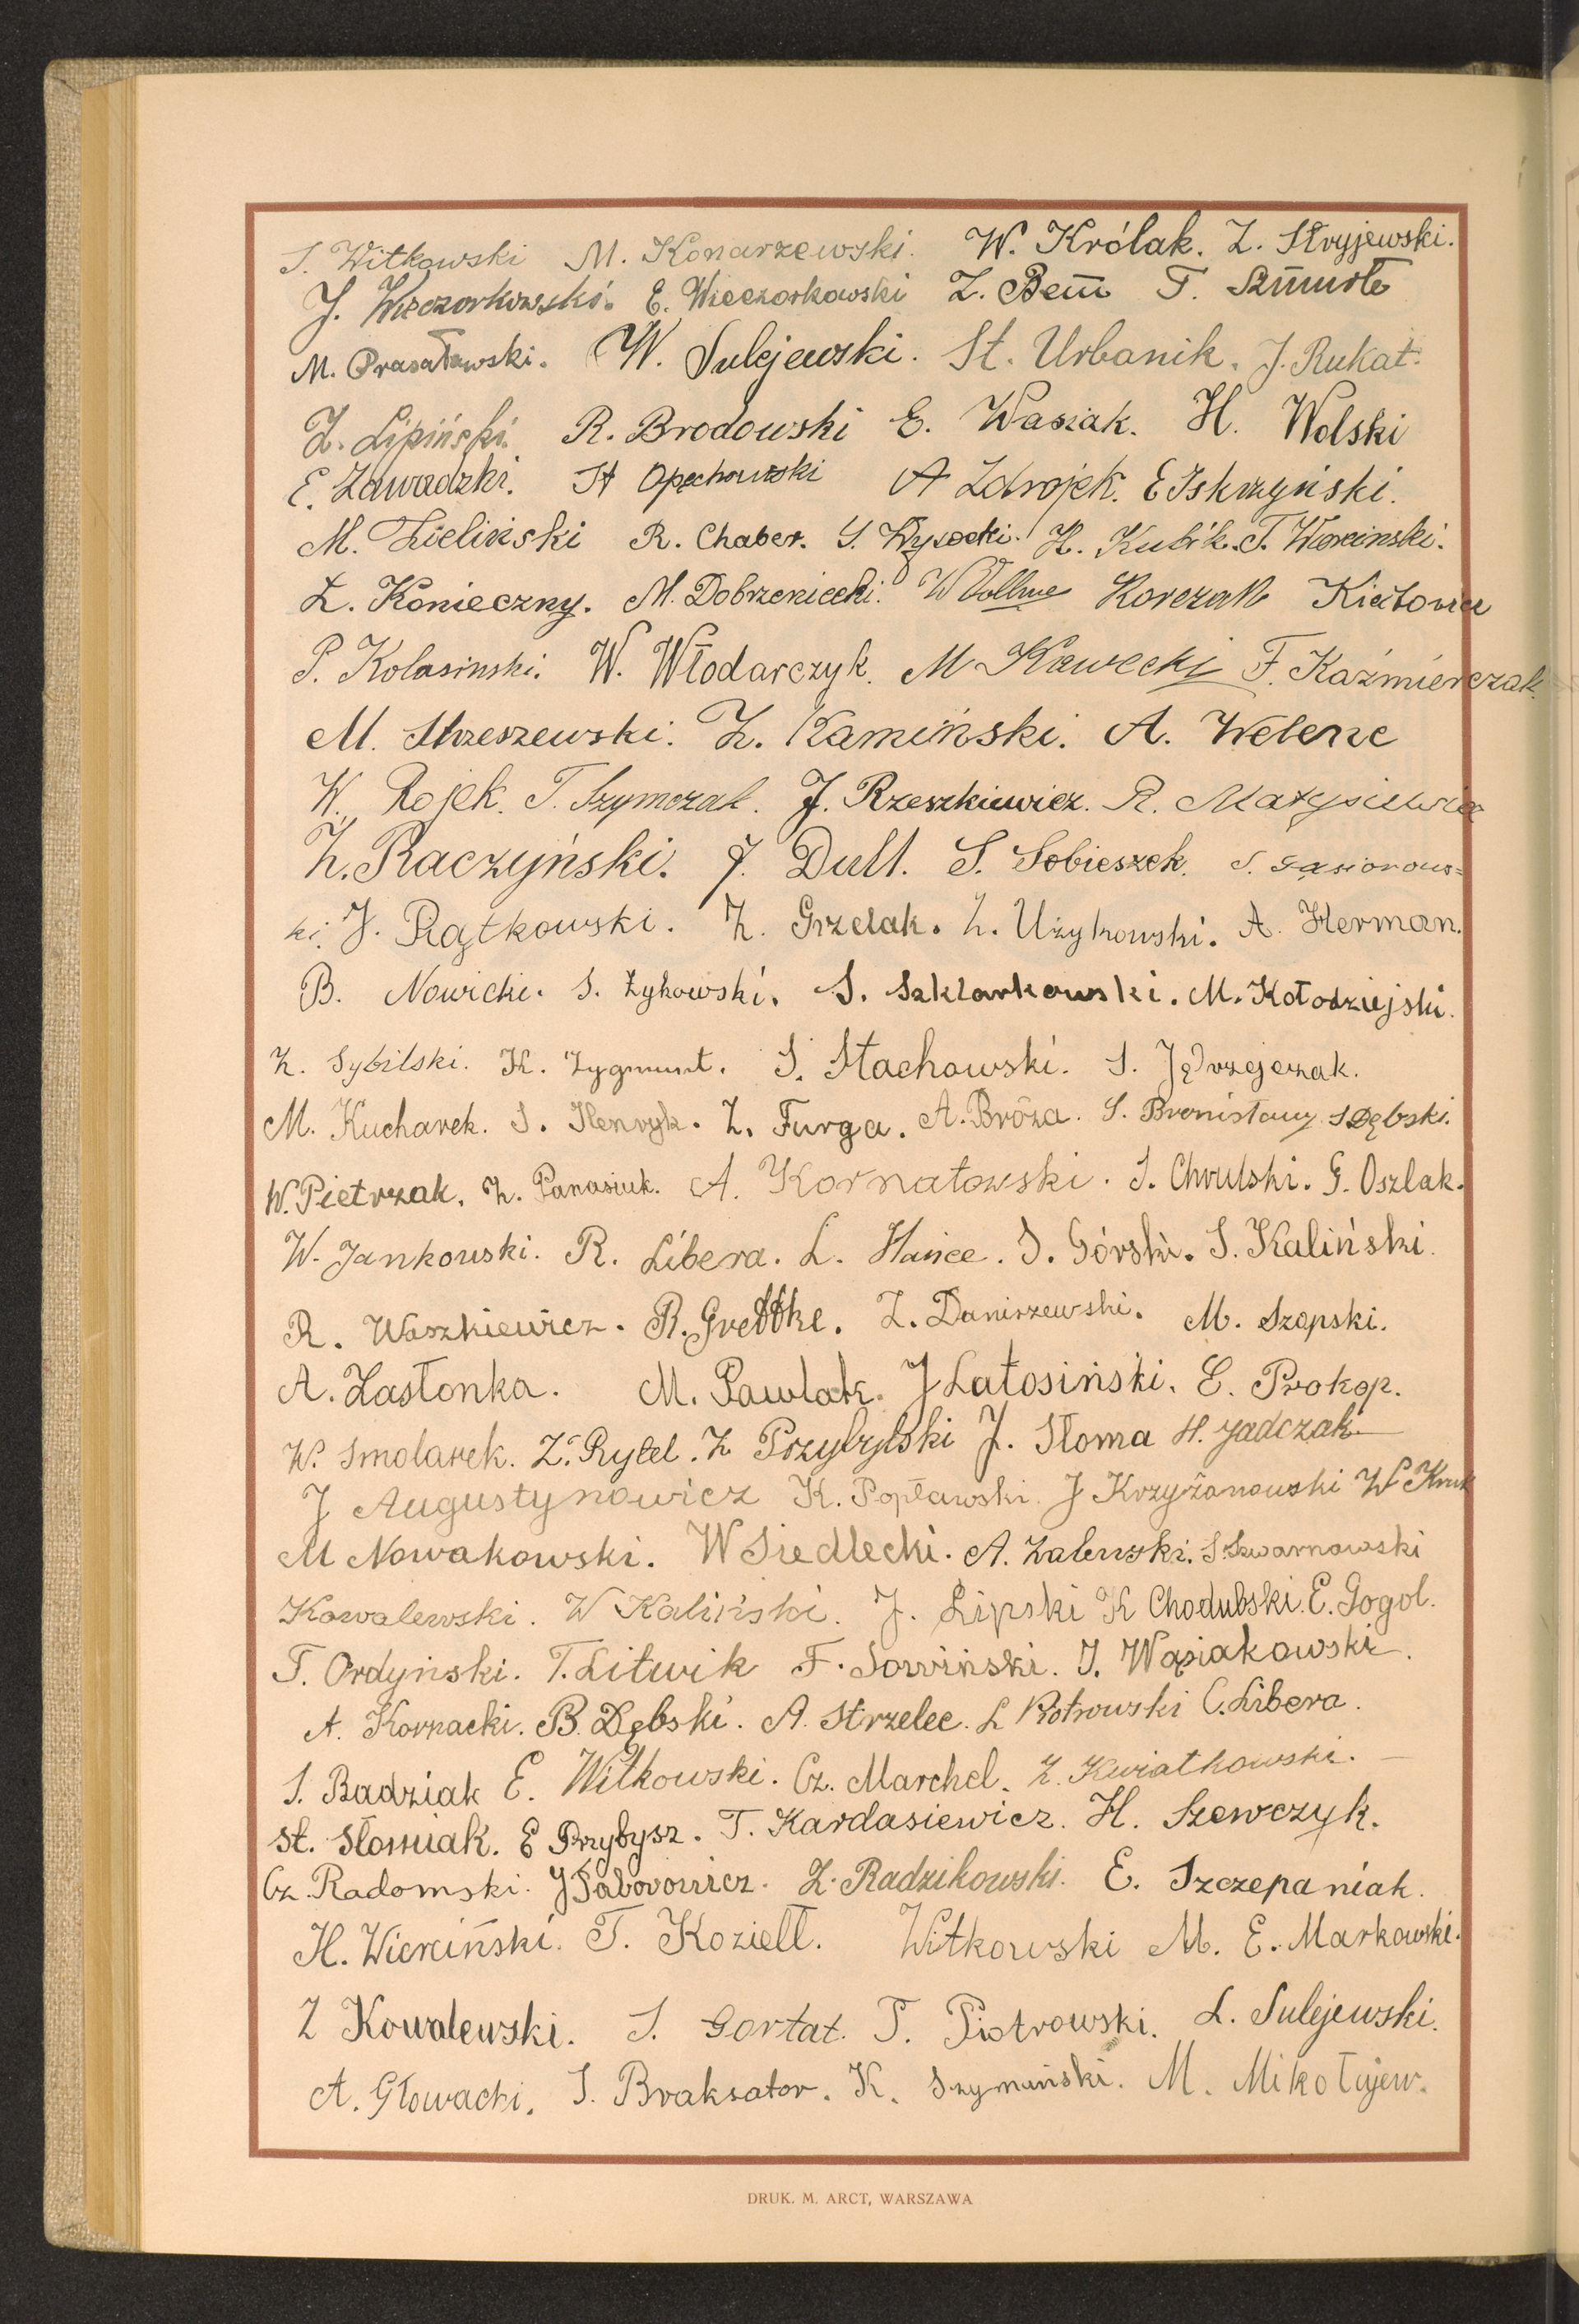 S. Witkowski M. Konarzewski. W. Królak. Z. Stryjewski.
J. Wieczorkowski. E. Wieczorkowski Z. Bem T. Szmurło
M. Prasałowski. W. Sulejewski. St. Urbanik. J. Rukat.
Z. Lipiński. R. Brodowski E. Wasiak. H. Wolski
E. Zawadzki. St Opęchowski A Zdrojek. E Iskrzyński.
M. Zieliński R. Chaber. S. Wysocki. H. Kubik. T. Worcinski.
Z. Konieczny. M. Dobrzeniecki. Korczak
P. Kolasinski. W. Włodarczyk. M Kawecki F. Kaźmierczak.
M. Strzeszewski. Z. Kamiński. A. Welenc
W. Rojek. T. Szymczak. J. Rzeszkiewicz. R. Matysiewicz
Z. Raczyński. J. Dull. S. Sobieszek. S. Gąsiorows=
ki. J. Piątkowski. Z. Grzelak. Z. Użykowski. A. Herman.
B. Nowicki. S. Żykowski. S. Szklarkowski. M. Kołodziejski.
Z. Sybilski. K. Zygmunt. S. Stachowski. S. Jędrzejczak.
M. Kucharek. S. Henryk. Z. Furga. A. Bróza. S. Bronisławy S Dębski.
W. Pietrzak. Z. Panasiuk. A. Kornatowski. S. Chrulski. G. Oszlak.
W. Jankowski. R. Libera. L. Hańce. S. Górski. S. Kaliński.
R. Waszkiewicz. R. Grettke. Z. Daniszewski. M. Szopski.
A. Zasłonka. M. Pawlak. J Latosiński. E. Prokop.
W. Smolarek. Z. Rytel. Z Przybylski J. Słoma H. Jadczak
J Augustynowicz K. Popławski. J Krzyżanowski W Kruk
M Nowakowski. W Siedlecki. A. Zalewski. S. Szwarnowski
Kowalewski. W Kaliński. J. Lipski K Chodubski. E. Gogol.
T. Ordyński. T. Litwik F. Sowiński. J. Wąsiakowski.
A. Kornacki. B. Dębski. A. Strzelec. L Piotrowski C. Libera.
S. Badziak E. Witkowski. Cz. Marchel. Z. Kwiatkowski. –
St. Słomiak. E Przybysz. T. Kardasiewicz. H. Szewczyk.
Cz. Radomski. J Taborowicz. Z. Radzikowski. E. Szczepaniak.
H. Wierciński. T. Koziełł. Witkowski M. E. Markowski.
Z Kowalewski. S. Gortat. T. Piotrowski. L. Sulejewski.
A. Głowacki. S. Braksator. K. Szymański. M. Mikołajew.
DRUK. M. ARCT, WARSZAWA